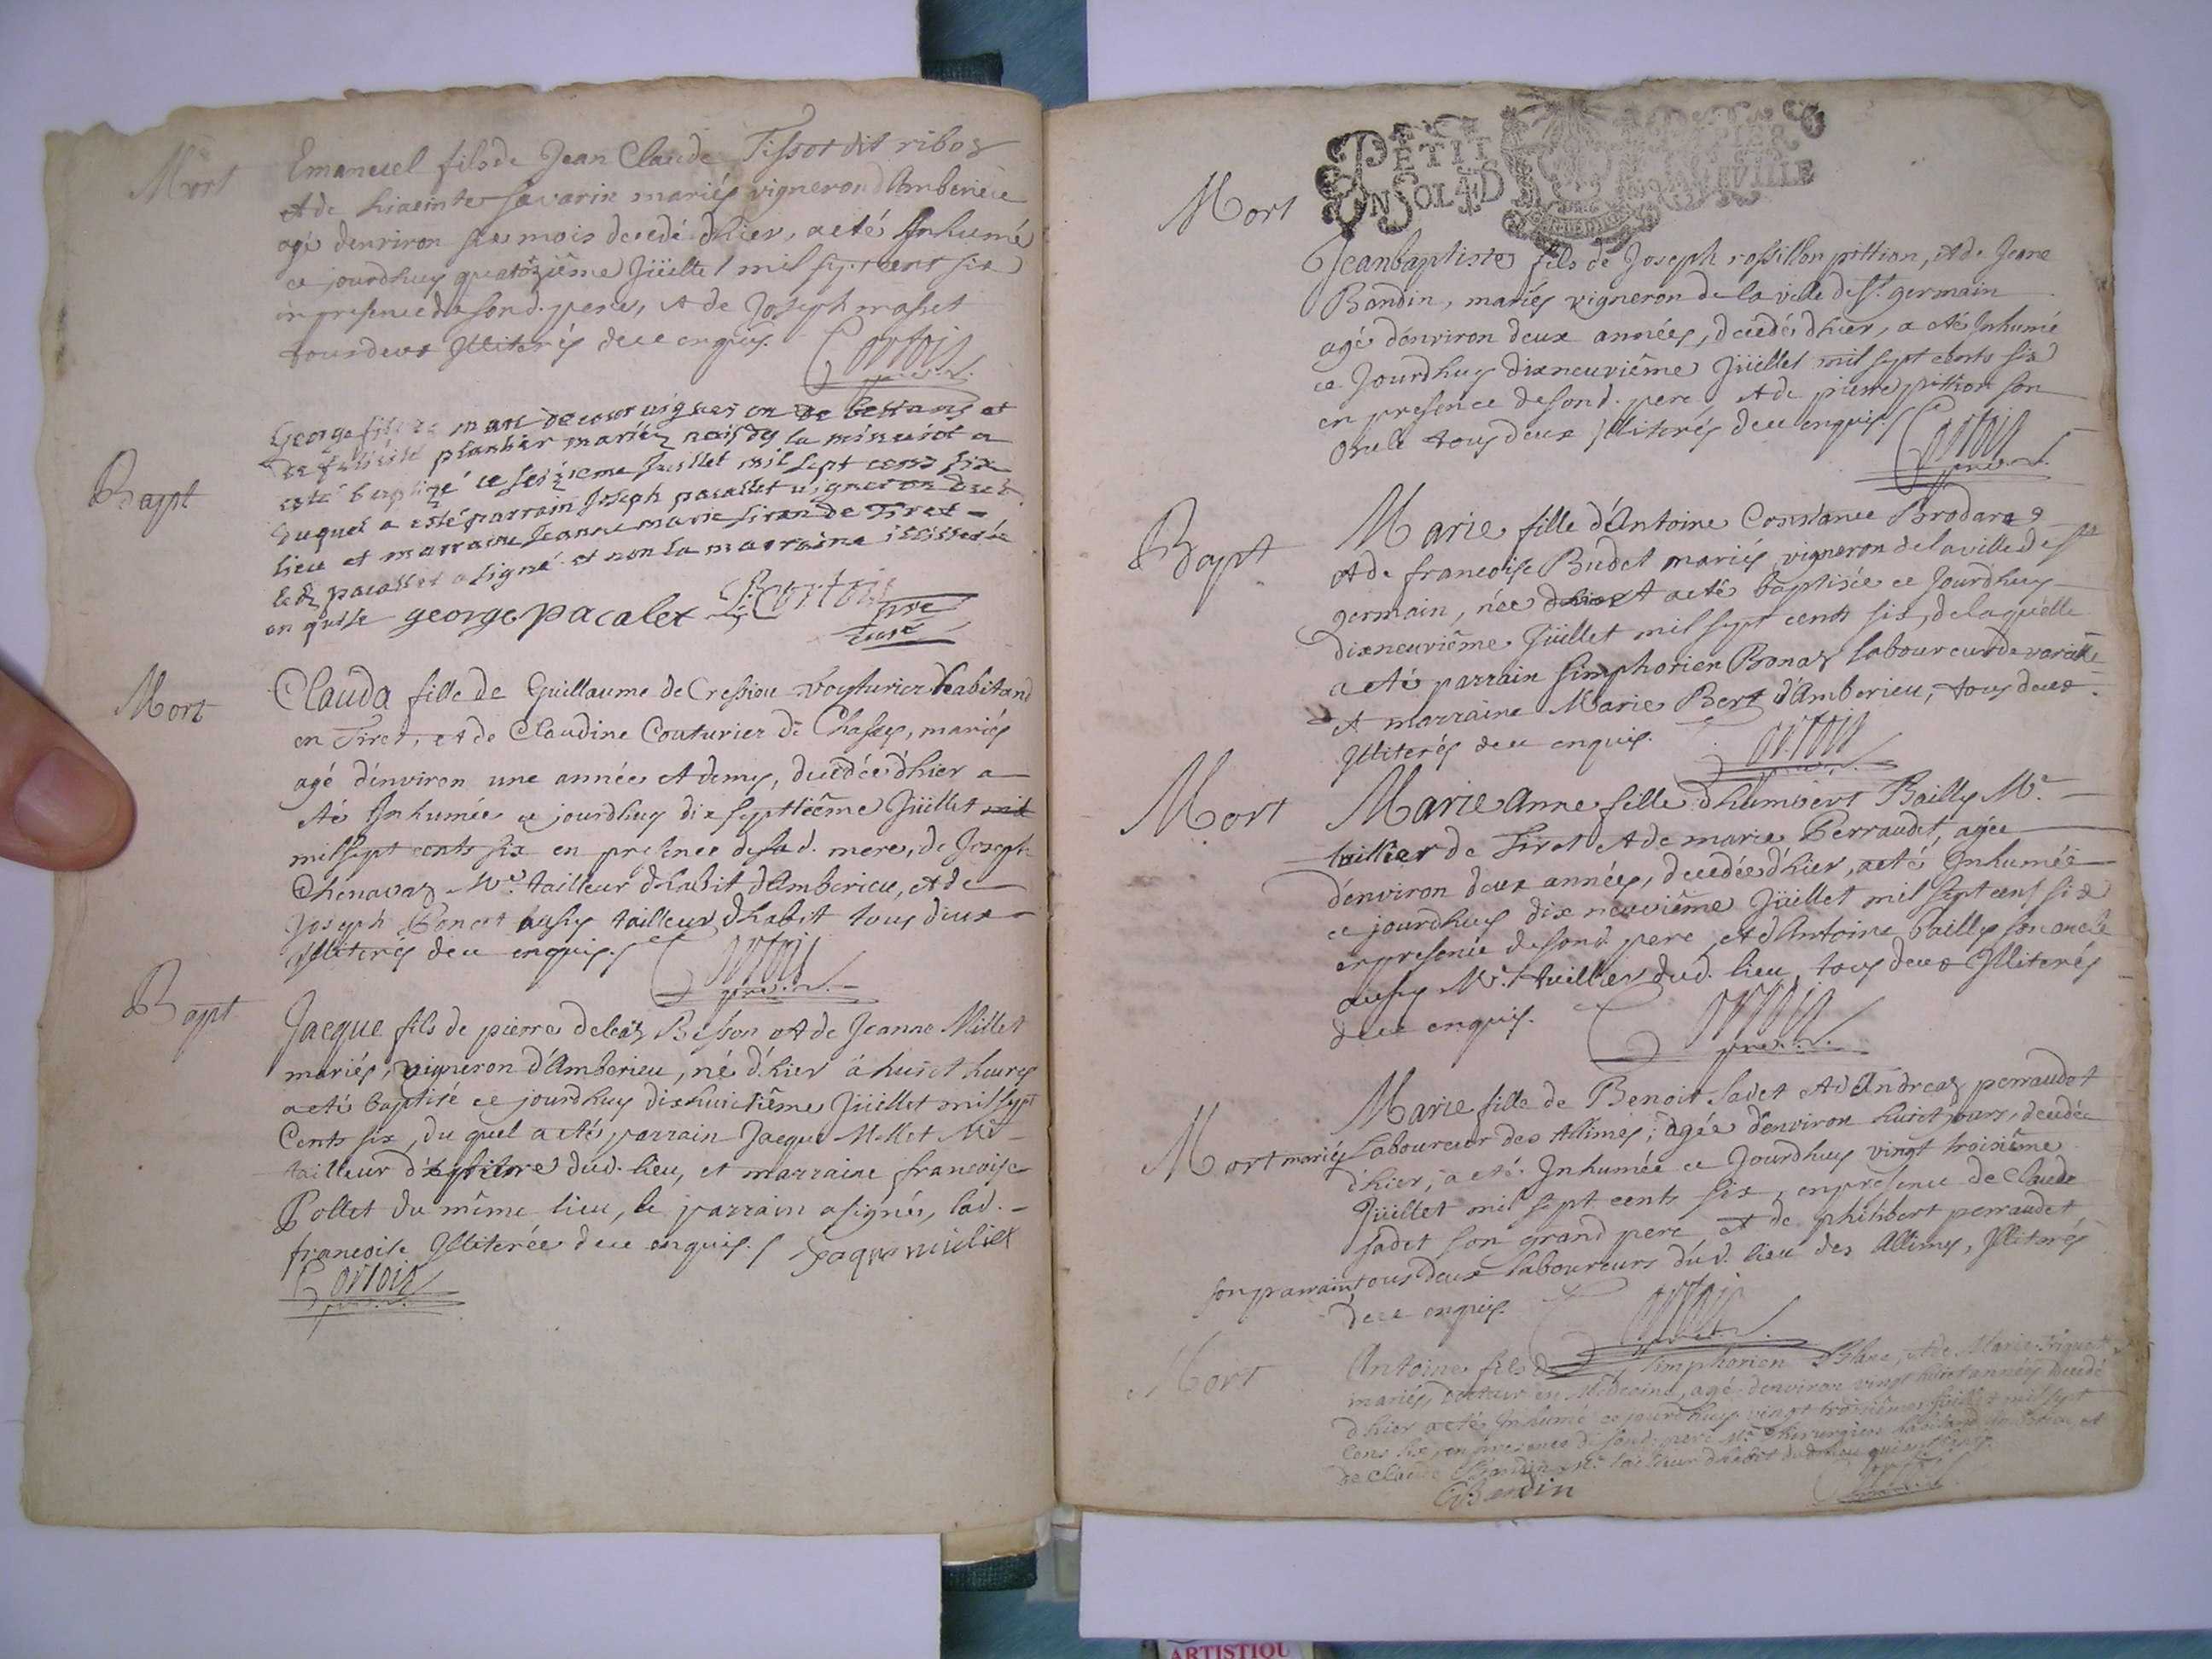 Mort
Emanuel fils de Jean Claude Tissot dit riboz
et de hiacinte savarin mariés vigneron d'Amberieu
agé d'environ six mois decedé d'hier, a eté Inhumé
ce jourd'huy quatorziême Jüillet mil sept cent six
en presence de sond. pere, et de Joseph masset
tous deux Illiterés de ce enquis.
Cortois
Bapt
George fils de marc vigneron de et
de planter mariéz la minuict a
esté baptizé ce seizieme Juillet mil sept cens six
duquel a esté parrain Joseph pacallet vigneron dud.
lieu et marraine Jeanne marie siran de Tiret
led. pacallet a signé et non la marraine
en quise george pacalet Cortois
pre
curé
Mort
Clauda fille de Guillaume de Cressieu voyturier habitand
en Tiret, et de Claudine Couturier de Chasey, mariés
agé d'environ une année et demy, decedée d'hier a
été Inhumée ce jourd'huy dix septtiême Jüillet mil
mil sept cents six en presence de sad. mere, de Joseph
Chenavaz Me. tailleur d'habit d'Amberieu, et de
Joseph Poncet aussy tailleur d'habit tous deux
Illiterés de ce enquis.
Cortois
Bapt
Jacque fils de pierre deleaz Besson et de Jeanne Millet
mariés, vigneron d'Amberieu, né d'hier à huict heures
a eté baptisé ce jourd'huy dixhuictiême Jüillet mil sept
Cents six, du quel a eté parrain Jacque Millet Me
tailleur dud. lieu, et marraine francoise
Pollet du même lieu, le parrain a signé, lad.
francoise Illiterée de ce enquis. Jaque miliet
Cortois
PETIT PAPIER
UN SOL 4 D
Mort
Jeanbaptiste fils de Joseph rossillon pittion, et de Jeane
Bondin, mariés vigneron de la ville de St. germain
agé d'environ deux années, decedé d'hier, a eté Inhumé
ce Jourd'huy dixneuviême Jüillet mil sept cents six
en presence de sond. pere et de pierre pittion son
Oncle tous deux Illiterés de ce enquis
Cortois
Bapt
Marie fille d'Antoine Constance Brodara
et de francoise Budet mariés vigneron de la ville de St
germain, née d'hier et a eté baptisée ce Jourd'huy
dixneuviême Jüillet mil sept cents six, de laquelle
a eté parrain simphorien Bonaz laboureur de vareille
et marraine Marie Bert d'Amberieu, tous deux
Illiterés de ce enquis.
Cortois
Mort
Marie Anne fille d'humbert Bailly Me.
tuillier de Tiret et de marie Perraudet, agée
d'environ deux années, decedée d'hier, a eté Inhumée
ce jourd'huy dix neuviême Jüillet mil sept cent six
en presence de sond pere et d'Antoine bailly son oncle
aussy Me. tuillier dud. lieu, tous deux Illiterés
de ce enquis.
Cortois
Mort
Marie fille de Benoit Sadet et d'Andreaz perraudet
mariés Laboureur des Allimes, agée d'environ huict jours, decedée
d'hier, a eté Inhumée ce Jourd'huy vingt troisiême
Jüillet mil sept cents six, en presence de Claude
sadet son grand pere et de philibert perraudet
son parrain tous deux laboureurs dud. lieu des Allimes, Illiterés
de ce enquis.
Cortois
Mort
Antoine fils de simphorien Blanc, et de Marie
mariés, docteur en Medecine, agé d'environ vingt huict années decedé
d'hier a eté Inhumé ce jourd'huy vingt troisiême Juillet mil sept
Cens six, en presence de sond. pere Me. Chirurgien et
de Claude Bondin Me. tailleur d'habit dud. lieu
C Bondin